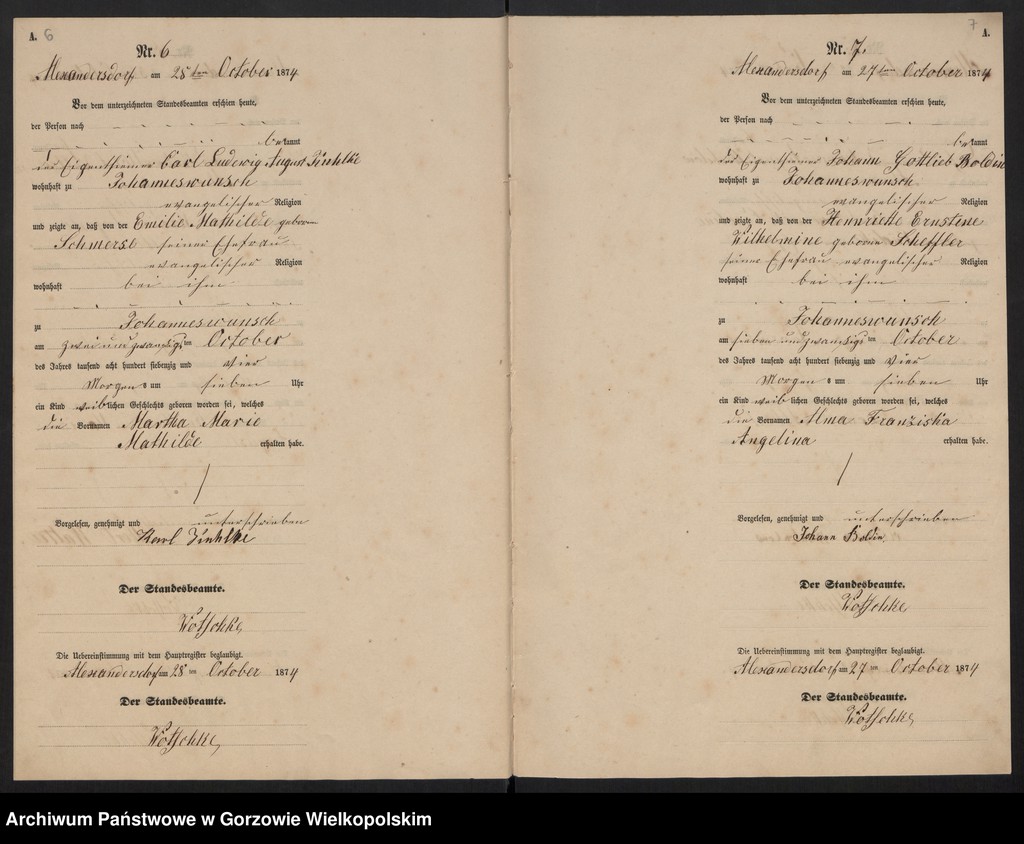 A. 6
Nr. 6
Alexandersdorf am 28ten October 1874
Vor dem unterzeichneten Standesbeamten erschien heute,
der Person nach
bekannt
der Eigenthümer Carl Ludwig August
wohnhaft zu Johanneswunsch
evangelischer Religion
und zeigte an, daß von der Emilie Mathilde geborne
Schmerse seiner Ehefrau
evangelischer Religion
wohnhaft bei ihm
zu Johanneswunsch
am zwei und zwanzigs ten October
des Jahres tausend acht hundert siebenzig und vier
Morgens um sieben Uhr
ein Kind weiblichen Geschlechts geboren worden sei, welches
die Vornamen Martha Marie
Mathilde erhalten habe.
Vorgelesen, genehmigt und unterschrieben
Karl
Der Standesbeamte.
Wotschke
Die Uebereinstimmung mit dem Hauptregister beglaubigt.
Alexandersdorf am 28 ten October 1874
Der Standesbeamte.
Wotschke
7 A.
Nr. 7.
Alexandersdorf am 27ten October 1874
Vor dem unterzeichneten Standesbeamten erschien heute,
der Person nach
bekannt
der Eigenthümer Johann Gottlieb Boldin
wohnhaft zu Johanneswunsch
evangelischer Religion
und zeigte an, daß von der Hennriette Ernstine
Wilhelmine geborne Scheffler
seiner Ehefrau evangelischer Religion
wohnhaft bei ihm
zu Johanneswunsch
am sieben und zwanzigs ten October
des Jahres tausend acht hundert siebenzig und vier
Morgens um sieben Uhr
ein Kind weiblichen Geschlechts geboren worden sei, welches
die Vornamen Alma Franziska
Angelina erhalten habe.
Vorgelesen, genehmigt und unterschrieben
Johann Boldin
Der Standesbeamte.
Wotschke
Die Uebereinstimmung mit dem Hauptregister beglaubigt.
Alexandersdorf am 27 ten October 1874
Der Standesbeamte.
Wotschke
Archiwum Państwowe w Gorzowie Wielkopolskim